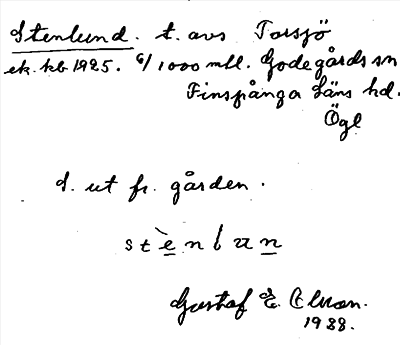 Stenlund. t. avs Torsjö
ek. kb 1925. 6/1000 mtl. Godegårds sn
Finspånga läns hd.
Ögl
S. ut fr. gården.
stènlun
Gustaf E.
1928.